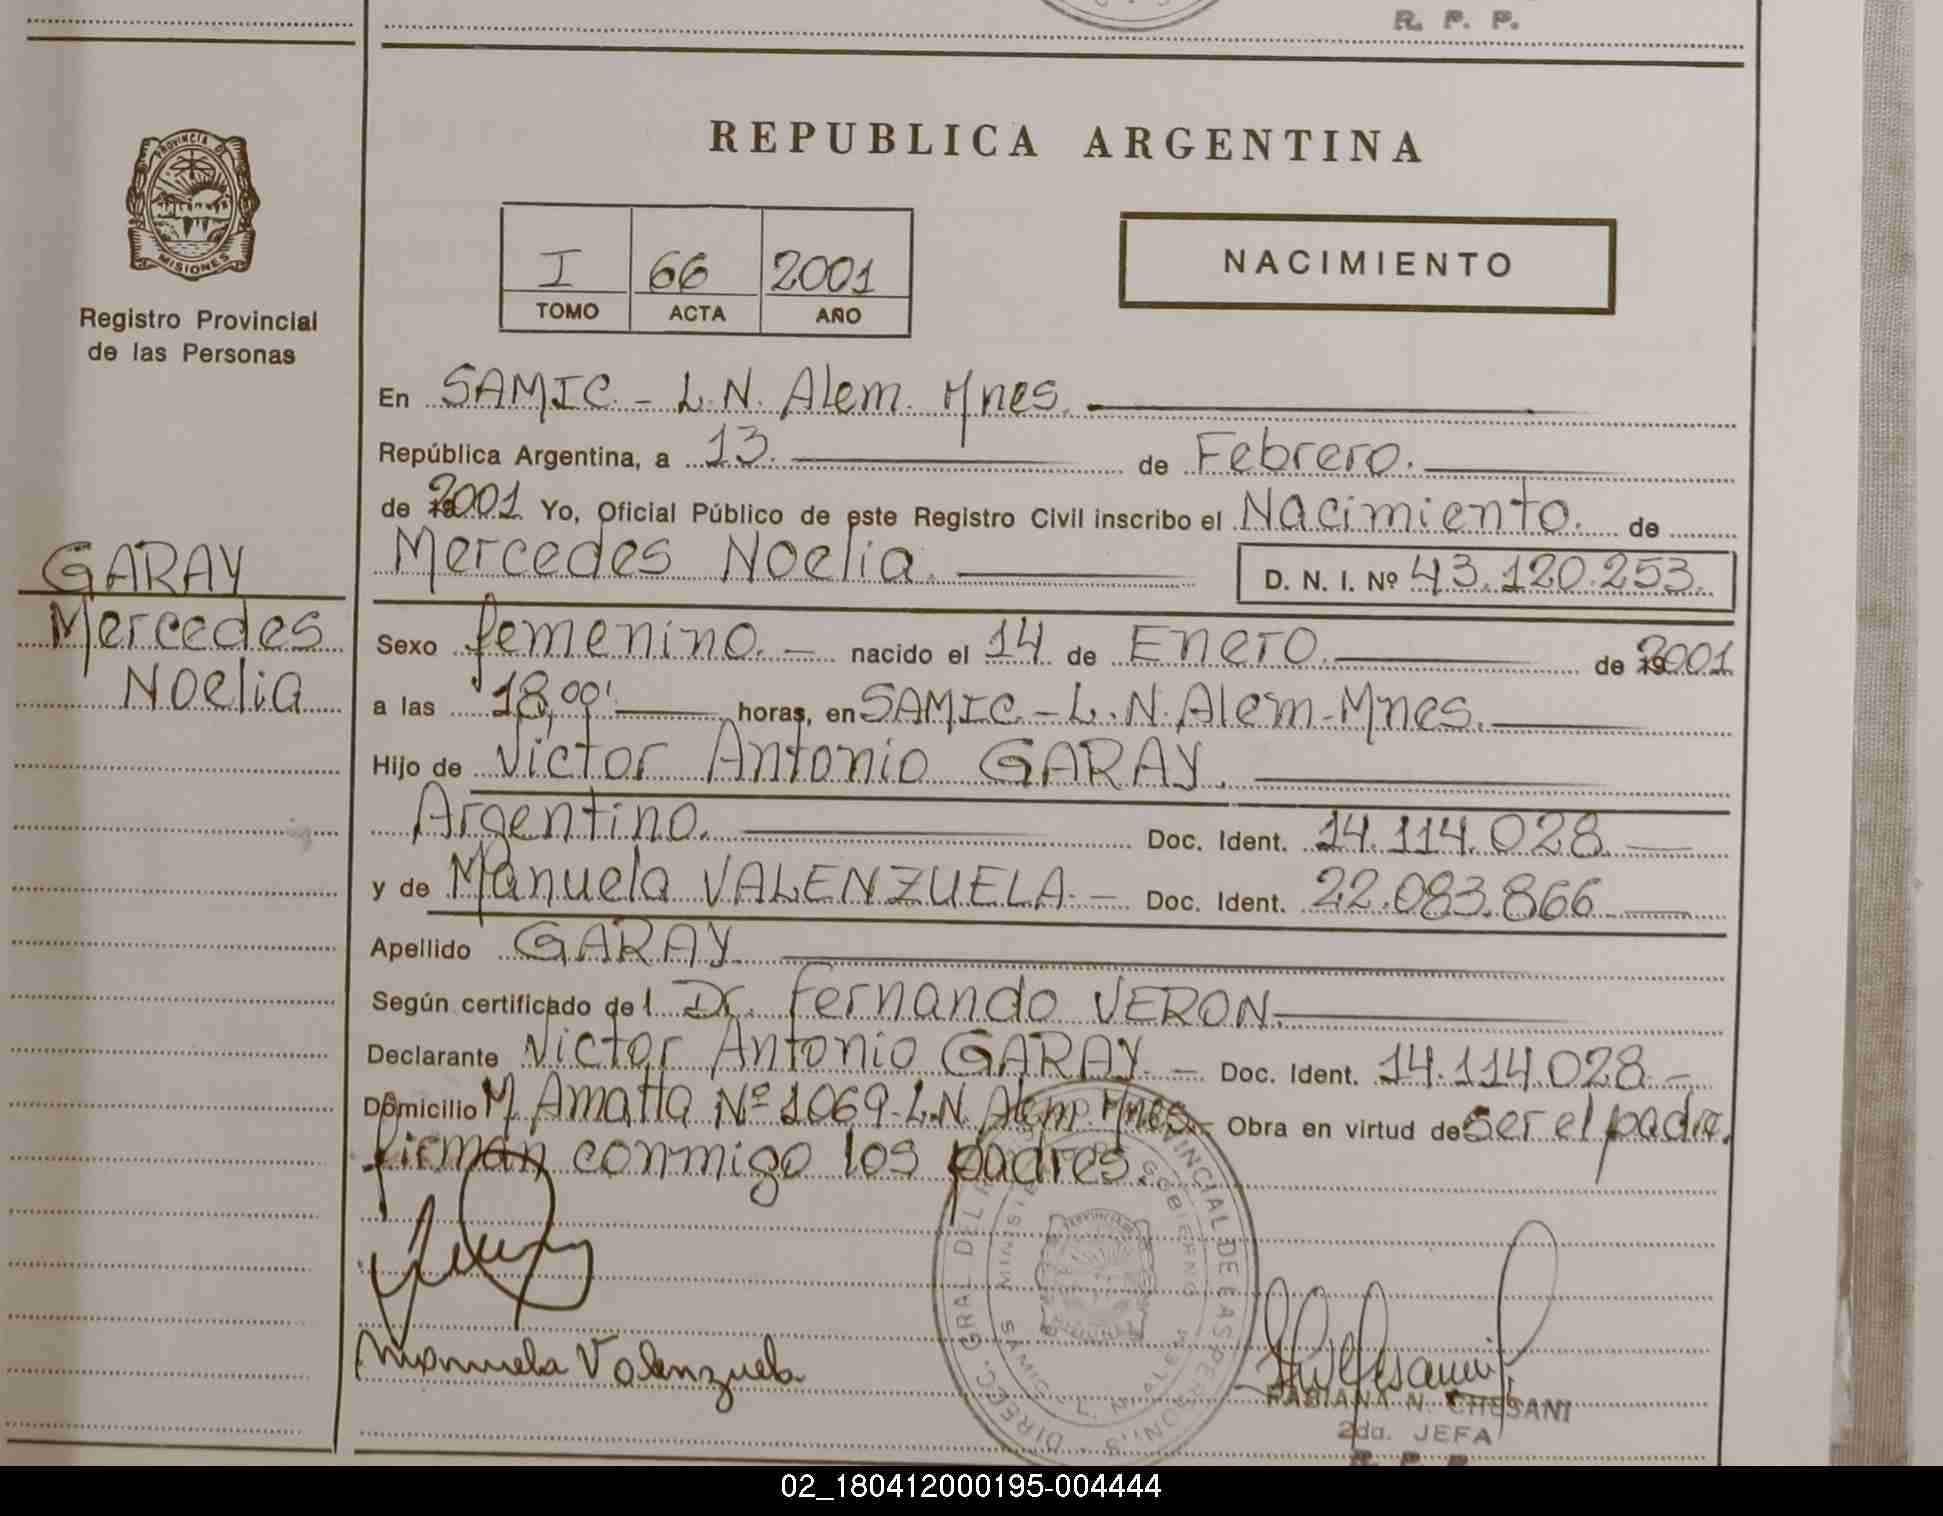 R. P. P.
PROVINCIA DE
MISIONES
Registro Provincial
de las Personas
GARAY
Mercedes
Noelia
REPUBLICA ARGENTINA
I 66 2001
TOMO ACTA AÑO
NACIMIENTO
En SAMIC - L.N. Alem. Mnes.
República Argentina, a 13. de Febrero.
de 2001 Yo, Oficial Público de este Registro Civil inscribo el Nacimiento. de
Mercedes Noelia. D. N. I. Nº 43.120.253.
Sexo femenino. - nacido el 14 de Enero. de 2001
a las 18,00' horas, en SAMIC - L.N. Alem - Mnes.
Hijo de Victor Antonio GARAY.
Argentino. Doc. Ident. 14.114.028
y de Manuela VALENZUELA. - Doc. Ident. 22.083.866
Apellido GARAY.
Según certificado del Dr. Fernando VERON.
Declarante Victor Antonio GARAY. - Doc. Ident. 14.114.028 -
Domicilio M. Amatta Nº 1069 - L.N. Alem. Mnes. - Obra en virtud de Ser el padre.
firman conmigo los padres.
Manuela Valenzuela
FABIANA N. CHESANI
2da. JEFA
R. P. P.
02_180412000195-004444